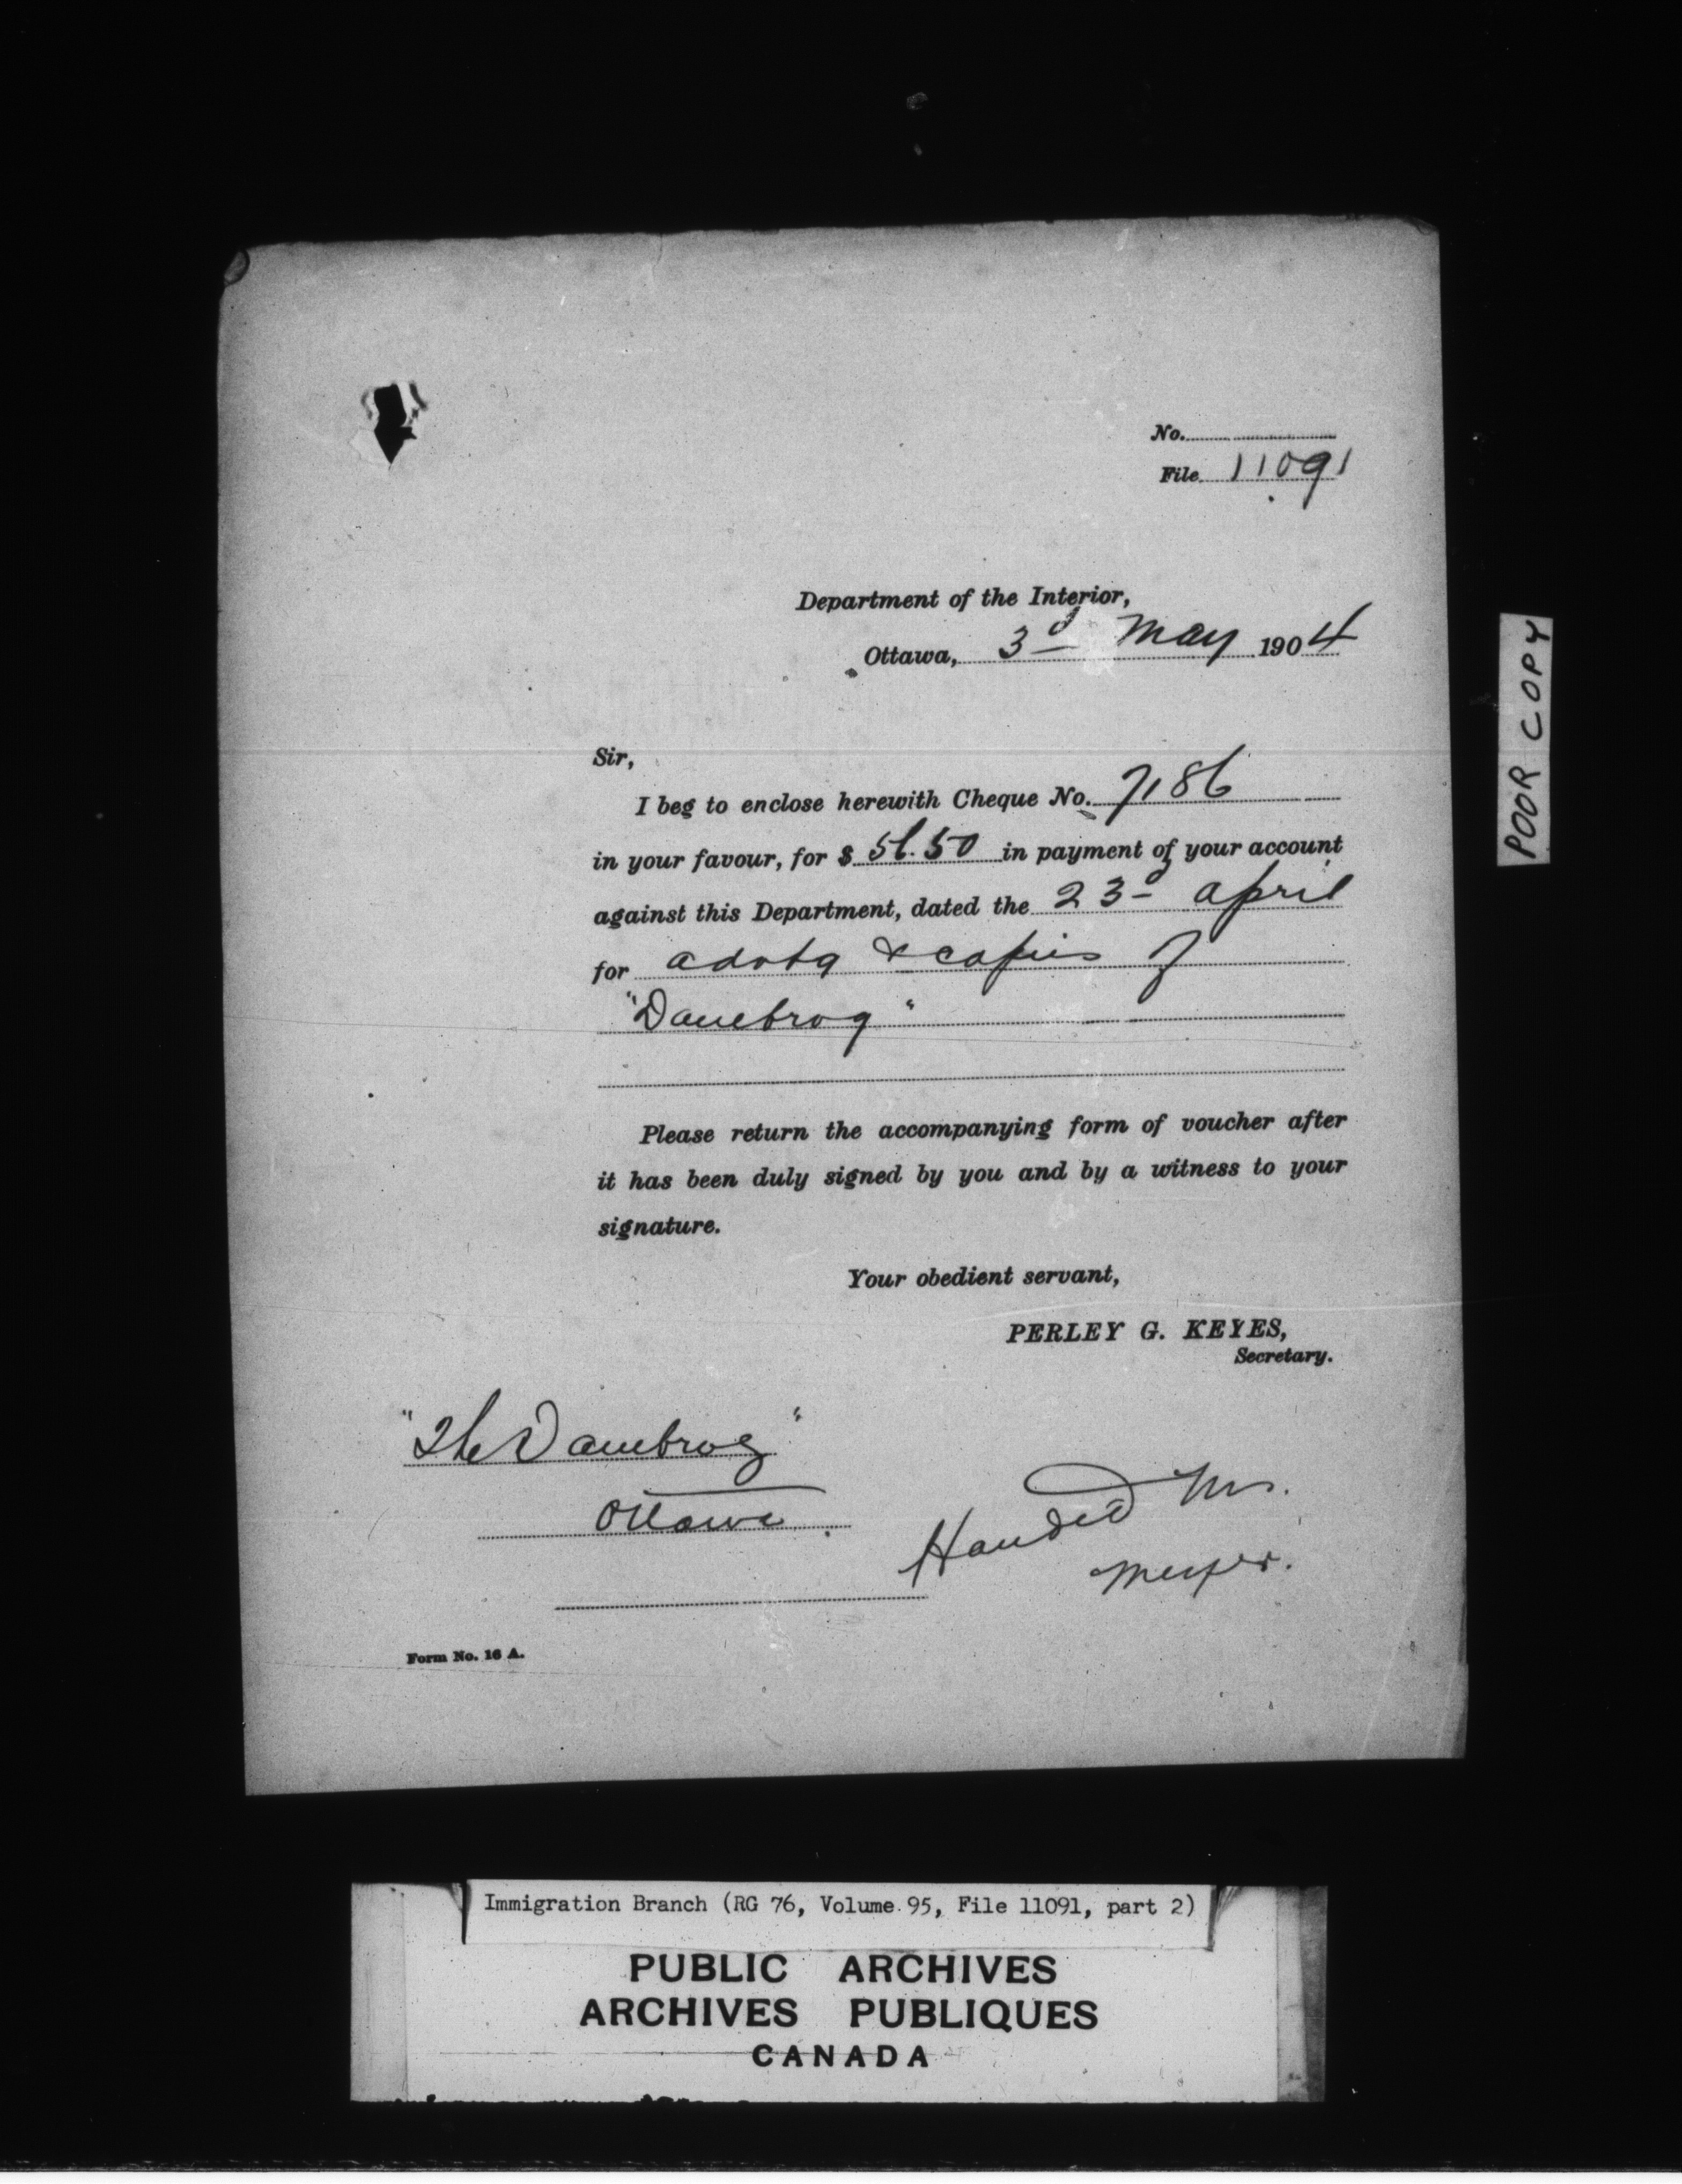 No.
File 11091
Department of the Interior,
Ottawa, 3d May 1904
Sir,
I beg to enclose herewith Cheque No. 7186
in your favour, for $ 51.50 in payment of your account
against this Department, dated the 23d April
for advtg & copies of
"Danebrog"
Please return the accompanying form of voucher after
it has been duly signed by you and by a witness to your
signature.
Your obedient servant,
PERLEY G. KEYES,
Secretary.
"The Danebrog"
Ottawa.
Handed Mr.
Meyer.
Form No. 16 A.
POOR COPY
Immigration Branch (RG 76, Volume 95, File 11091, part 2)
PUBLIC ARCHIVES
ARCHIVES PUBLIQUES
CANADA